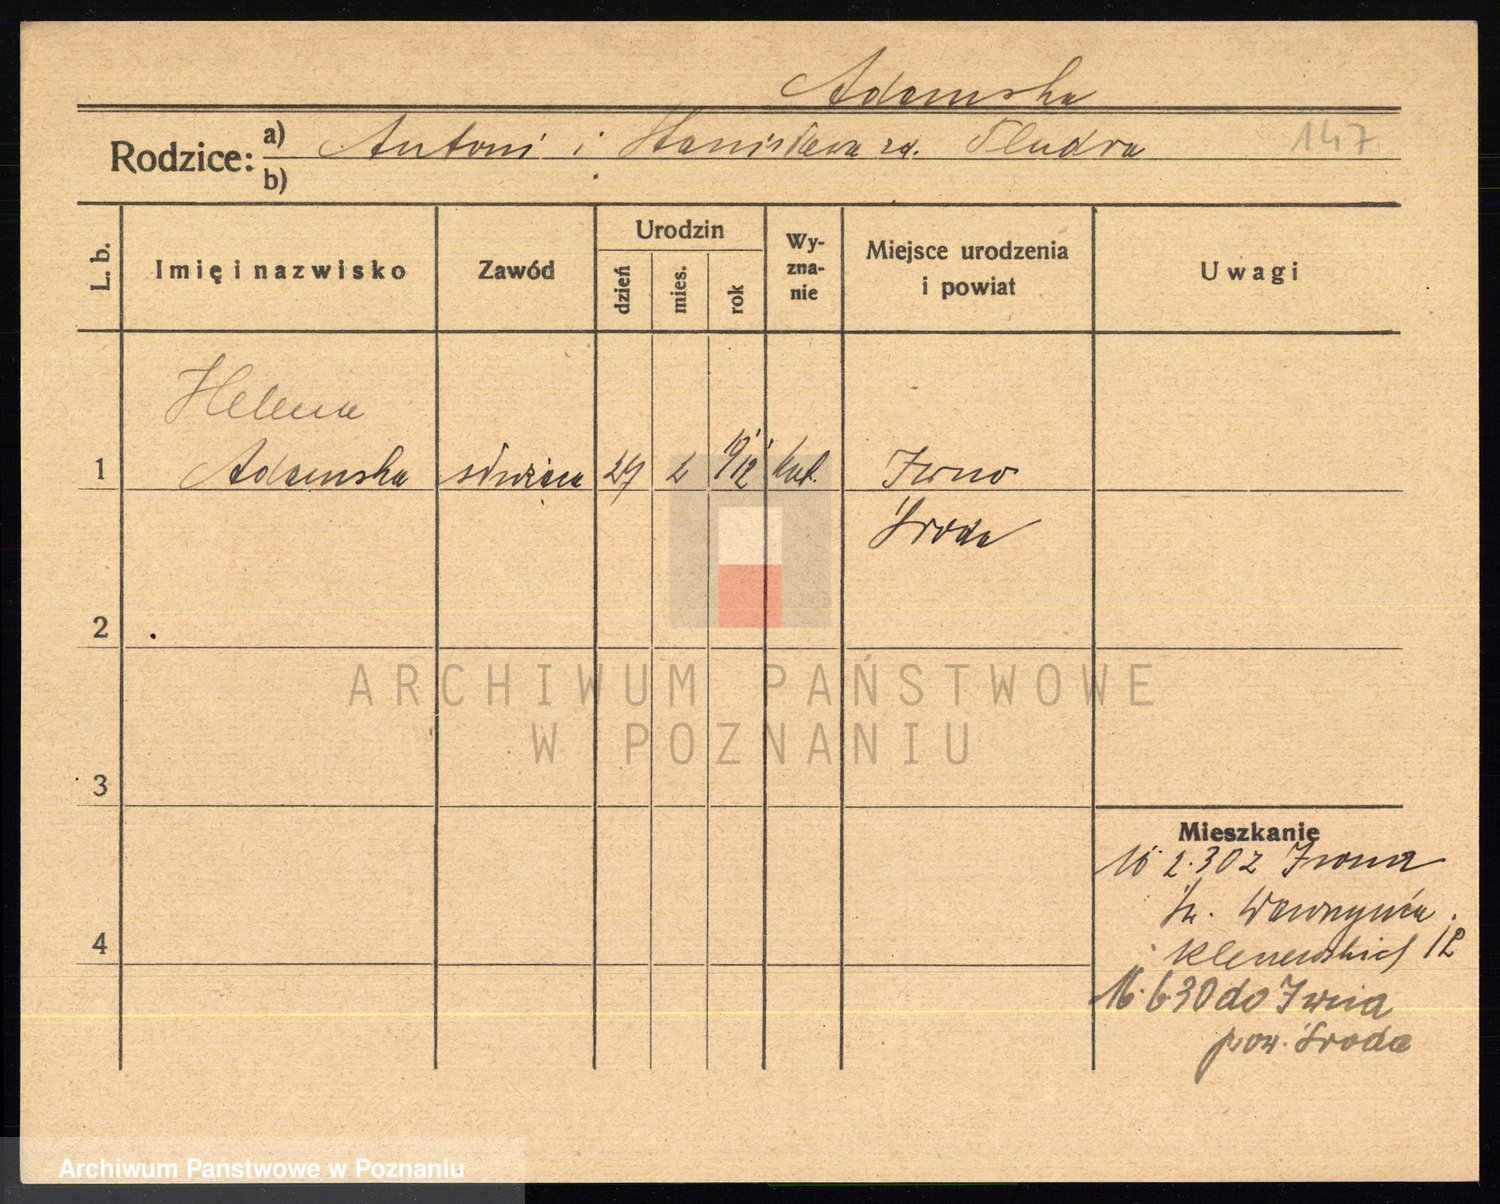 Adamska
Rodzice: a) Antoni i Stanisława zd. Pludra
b)
147
L. b.
Imię i nazwisko
Zawód
Urodzin
dzień
mies.
rok
Wy-
zna-
nie
Miejsce urodzenia
i powiat
Uwagi
Helena
1 Adamska służąca 27 2 1912 kat. Iwno
Środa
2
ARCHIWUM PAŃSTWOWE
W POZNANIU
3
Mieszkanie
10 2.30 z Iwna
Św. Wawrzyńca
4
16.6 30 do Iwna
pow. Środa
Archiwum Państwowe w Poznaniu